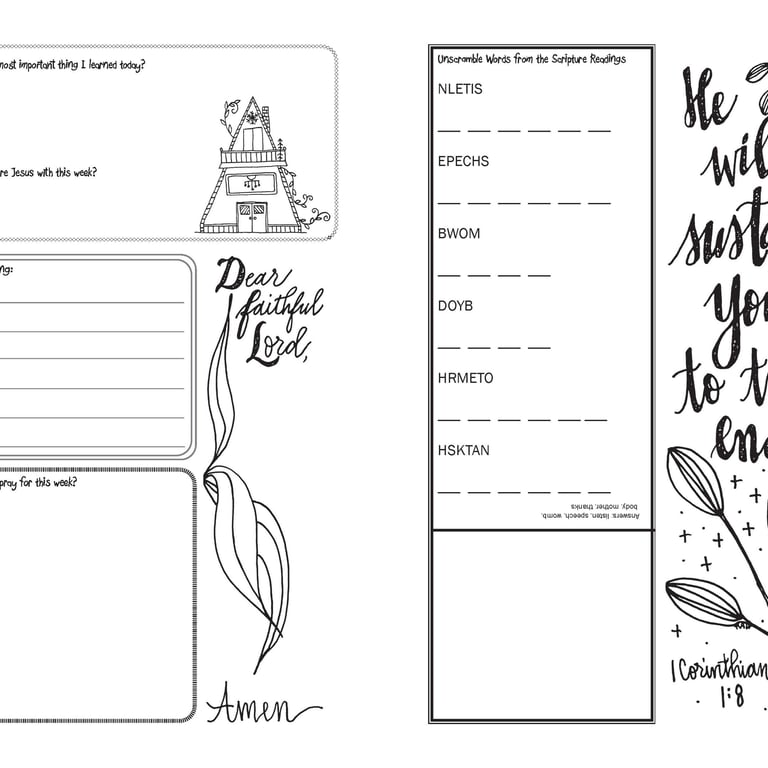 most important thing I learned today?
re Jesus with this week?
ng:
Dear
faithful
Lord,
pray for this week?
Amen
Unscramble Words from the Scripture Readings
NLETIS
EPECHS
BWOM
DOYB
HRMETO
HSKTAN
Answers: listen, speech, womb,
body, mother, thanks
He
wil
sust
you
to t
end
1 Corinthian
1:8